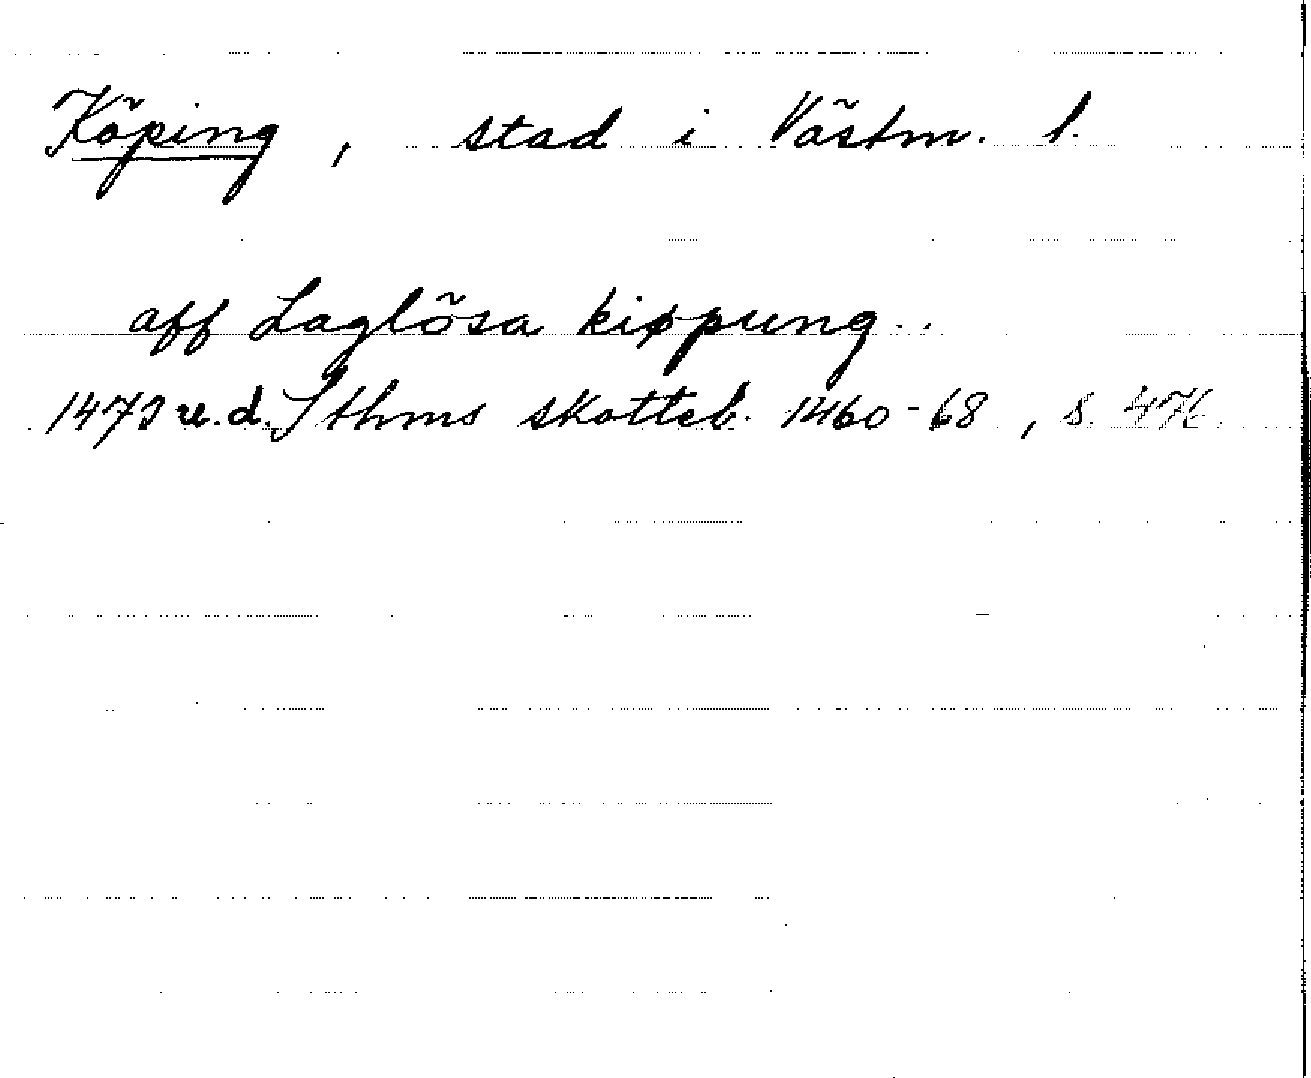 Köping, stad i Västm. l.
aff Laglösa kippung..
1473 u.d. Sthms skotteb. 1460-68, s. 476